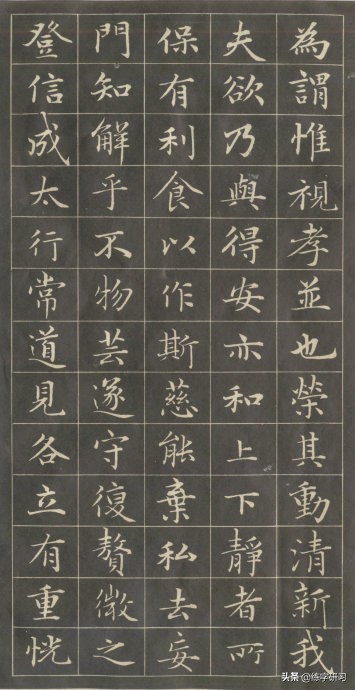 為謂惟視孝並也榮其動清新我
夫欲乃與得安亦和上下靜者所
保有利食以作斯慈能棄私去妄
門知解乎不物芸遂守復贅微之
登信成太行常道見各立有重恍
头条 @练字研习